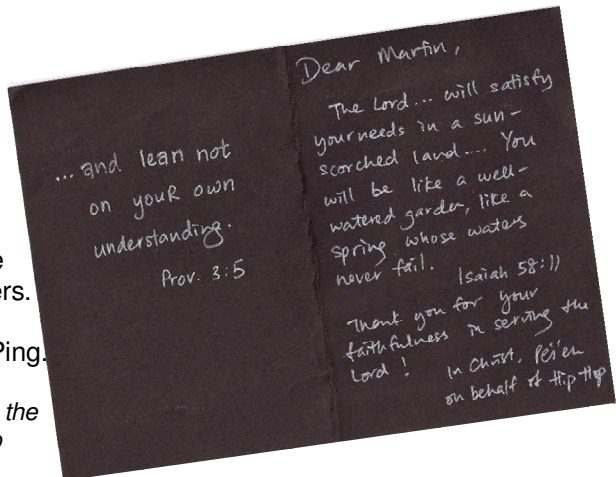 ...and lean not
on youR own
understanding.
Prov. 3:5
Dear Martin,
The Lord... will satisfy
your needs in a sun-
scorched land.... You
will be like a well-
watered garden, like a
spring whose waters
never fail.
Isaiah 58:11
Thank you for your
faithfulness in serving the
Lord!
In Christ, Pei'en
on behalf of Hip Hop
ers.
Ping.
the